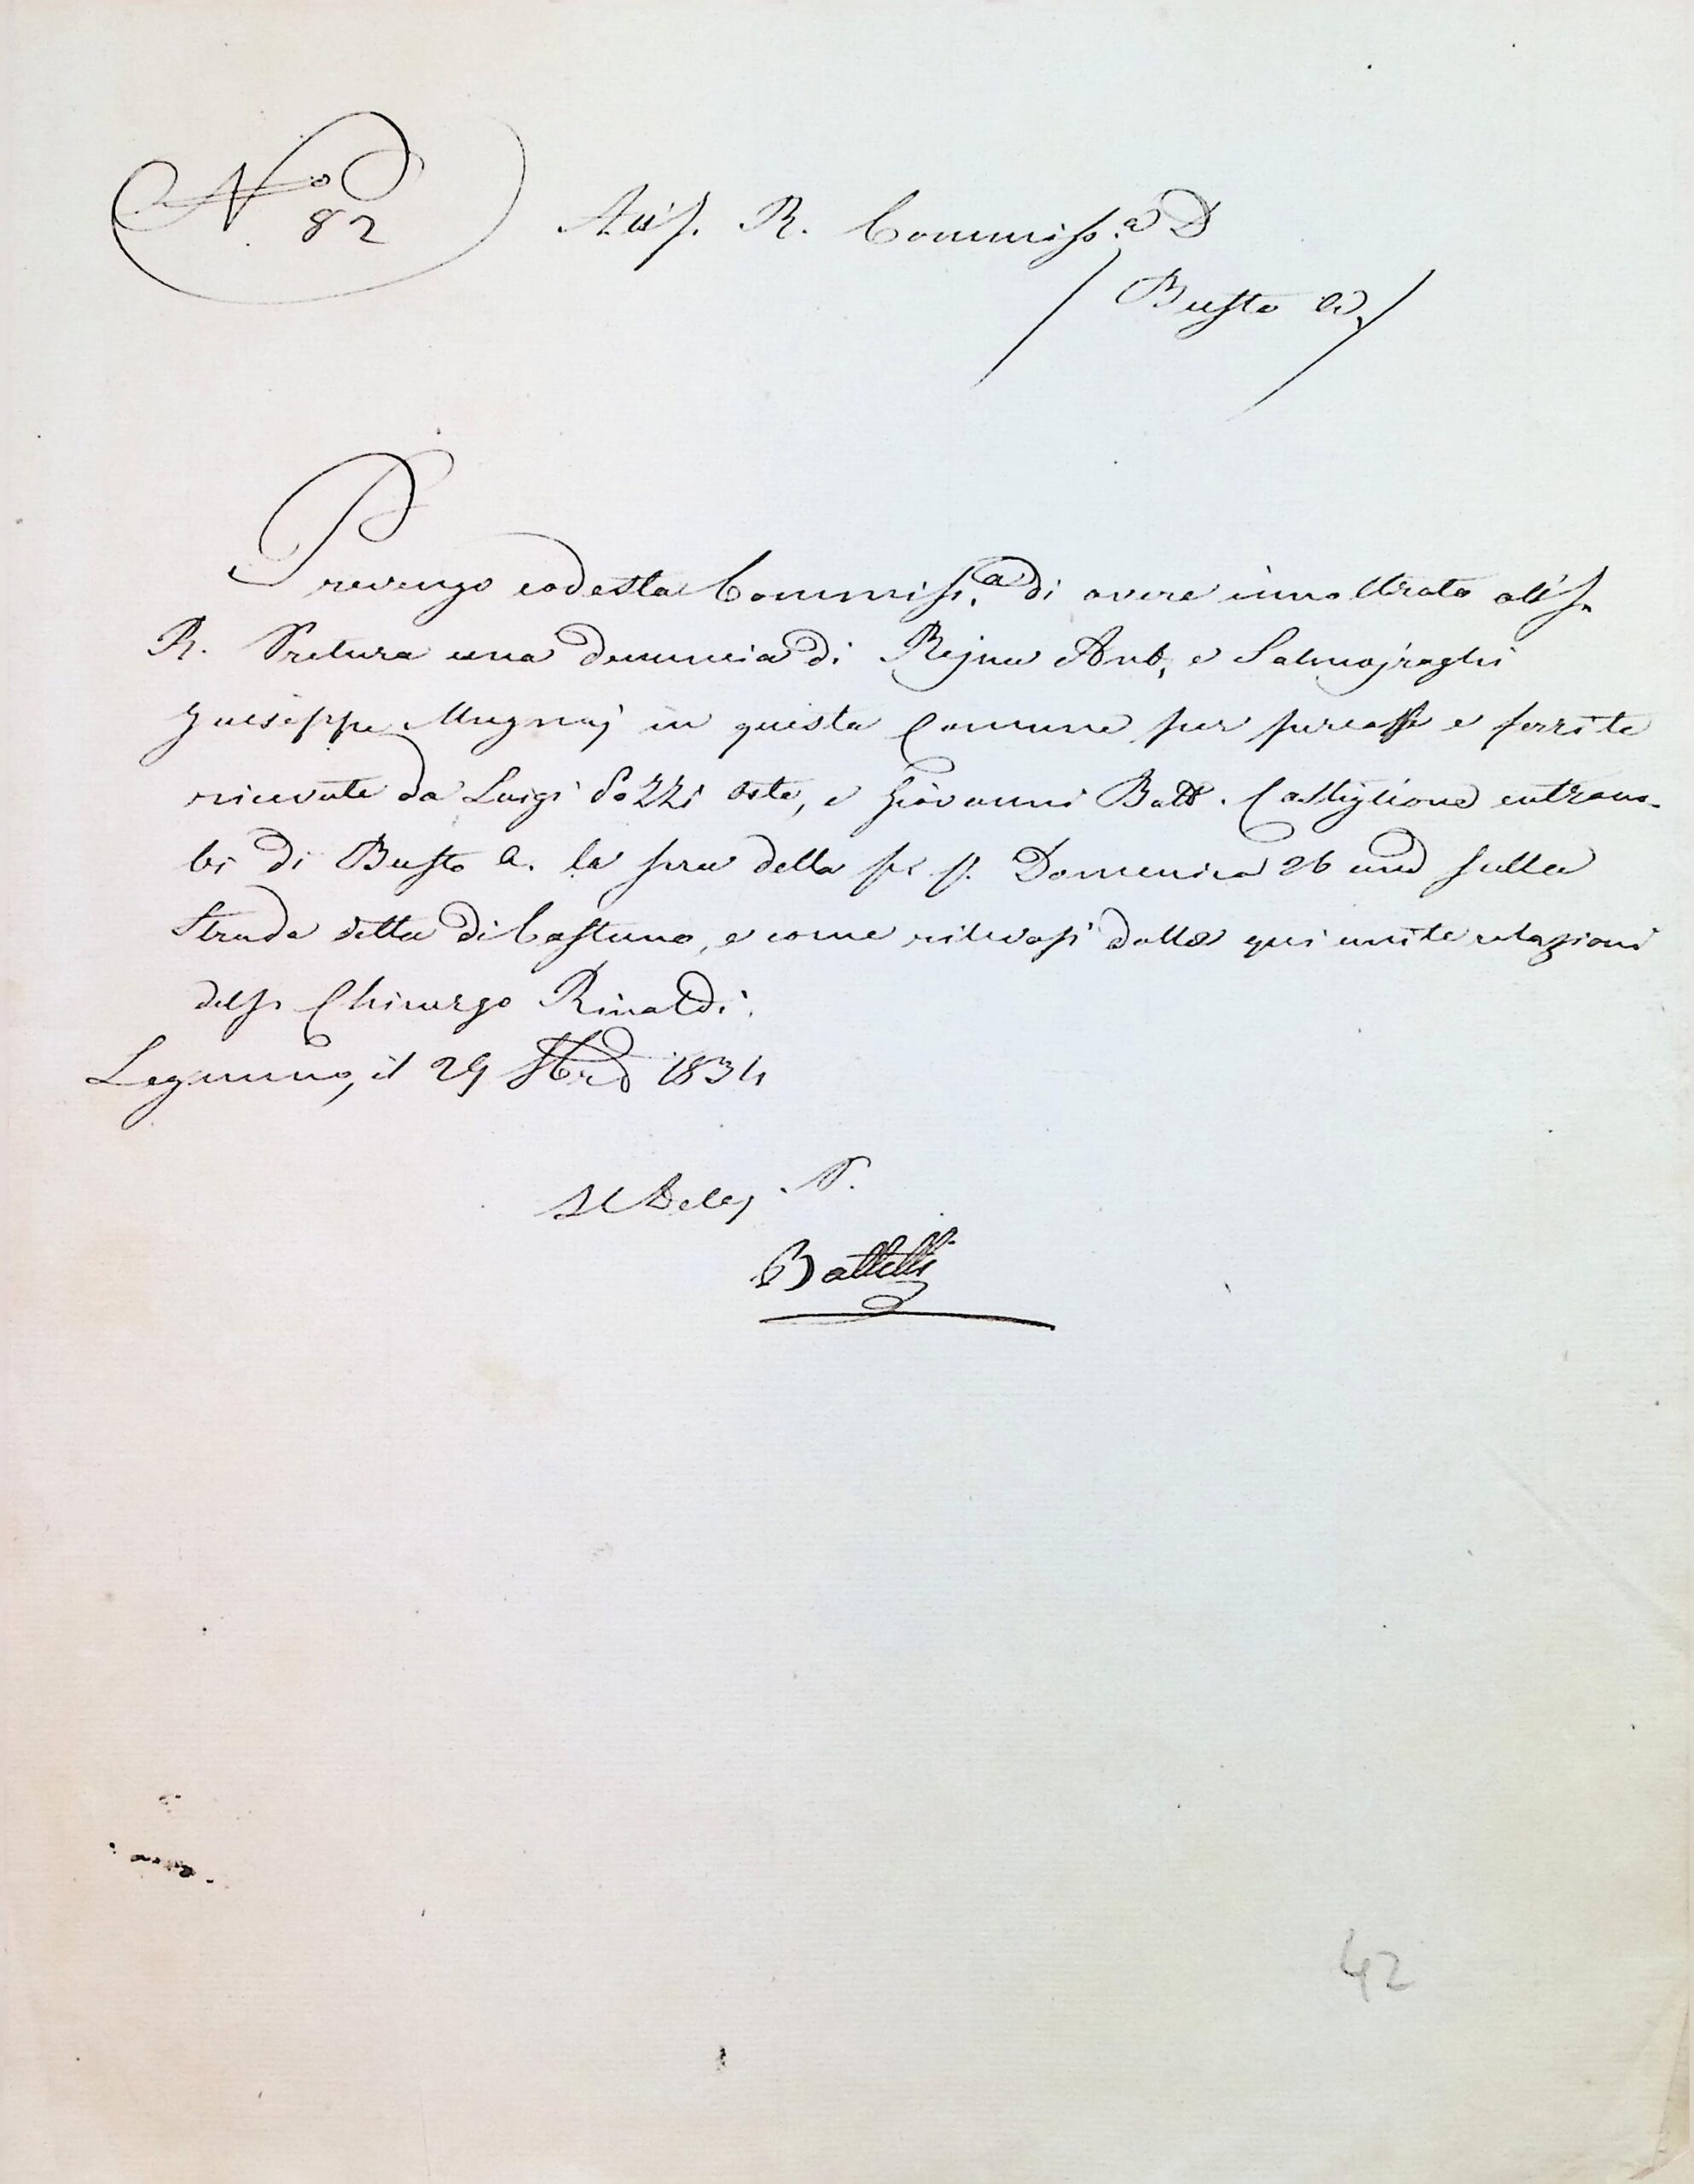 N.o 82
All'I. R. Commiss.a D
Busto A.
Prevengo codesta Commiss.a di avere innoltrata all'I.
R. Pretura una denuncia di Rejna Amb, e Salmojraghi
Giuseppe Mugnaj in questa Comune per percosse e ferrite
ricevute da Luigi Pozzi oste, e Giovanni Batt. Castiglione entram-
bi di Busto A. la sera della p. p. Domenica 26 and sulla
Strada detta di Castano, e come rilevasi dalle qui unite relazioni
del Sr Chirurgo Rinaldi.
Legnano, il 29 8bre 1834
Il Deleg. P.
Battelli
42